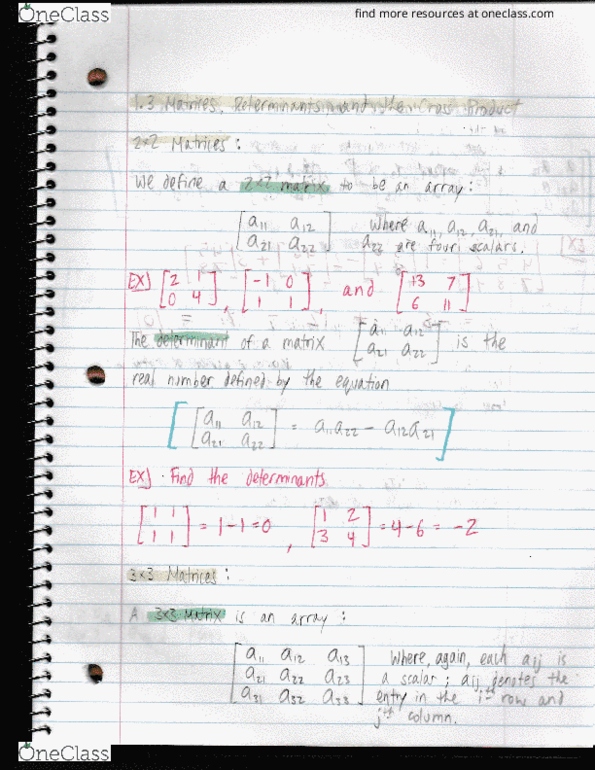 OneClass
find more resources at oneclass.com
1.3 Matrices, Determinants, and the Cross Product
2x2 Matrices:
We define a 2x2 matrix to be an array:
[a11 a12
a21 a22] Where a11, a12, a21, and
a22 are four scalars.
EX] [2 1
0 4], [-1 0
1 1], and [+3 7
6 11]
The determinant of a matrix [a11 a12
a21 a22] is the
real number defined by the equation
[[a11 a12
a21 a22] = a11a22 - a12a21]
EX] Find the determinants
[1 1
1 1] = 1-1=0, [1 2
3 4] = 4-6 = -2
3x3 Matrices:
A 3x3 Matrix is an array:
[a11 a12 a13
a21 a22 a23
a31 a32 a33] Where, again, each aij is
a scalar; aij denotes the
entry in the ith row and
jth column.
OneClass